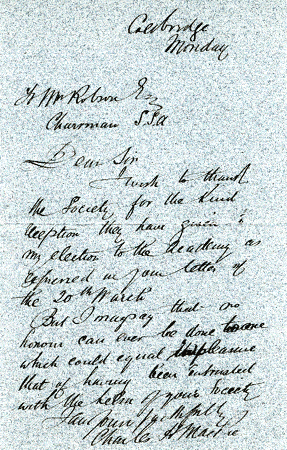 Coldbridge
Monday
Wm Robson Esq
Chairman S.S.A
Dear Sir
I wish to thank
the Society for the kind
reception they have given to
my election to the Academy as
expressed in your letter of
the 20th March
But I may say that no
honour can ever be done to me
which could equal the pleasure
that of having been entrusted
with the helm of your Society
I am yours faithfully
Charles